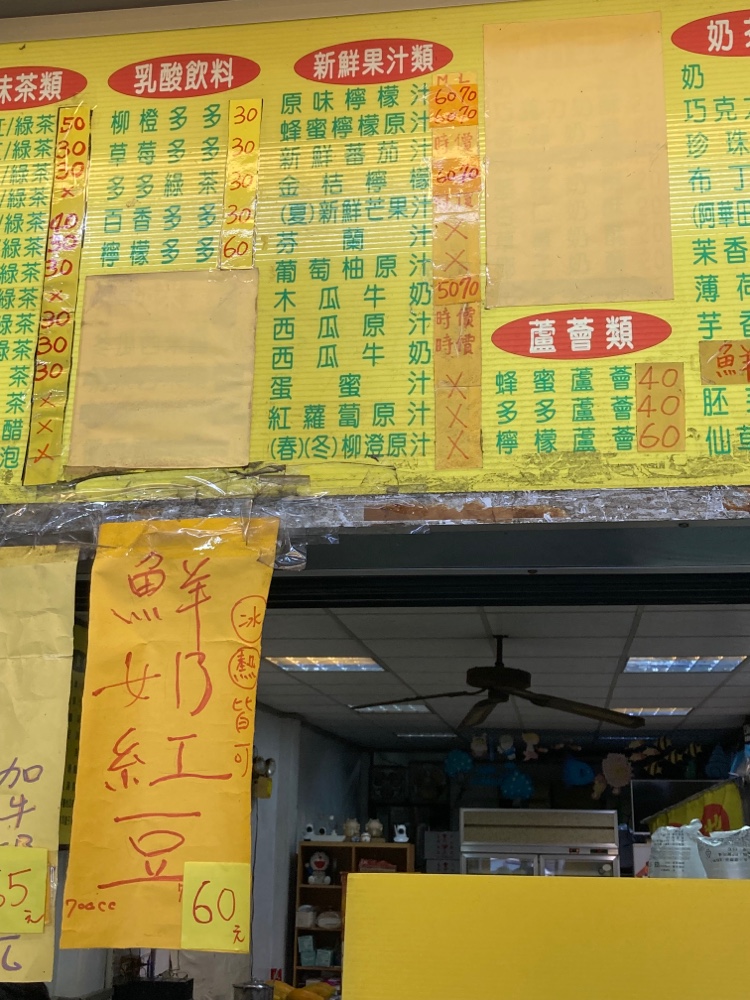 味茶類
紅/綠茶 50
/綠茶 30
/綠茶 30
/綠茶 ×
/綠茶 40
/綠茶
綠茶 30
綠茶 ×
綠茶 30
綠茶 30
茶 30
茶 ×
醋 ×
泡 ×
乳酸飲料
柳橙多多 30
草莓多多 30
多多綠茶 30
百香多多 30
檸檬多多 60
新鮮果汁類
原味檸檬汁 60 70
蜂蜜檸檬原汁 60 70
新鮮蕃茄汁 時價
金桔檸檬 60 70
(夏)新鮮芒果汁
芬蘭汁 ×
葡萄柚原汁 ×
木瓜牛奶 50 70
西瓜原汁 時價
西瓜牛奶 時價
蛋蜜汁 ×
紅蘿蔔原汁 ×
(春)(冬)柳澄原汁 ×
蘆薈類
蜂蜜蘆薈 40
多多蘆薈 40
檸檬蘆薈 60
奶茶
奶
巧克
珍珠
布丁
(阿華田
茉香
薄荷
芋香
鮮
胚
仙草
鮮奶紅豆
冰熱皆可
700cc
60元
加牛
65元